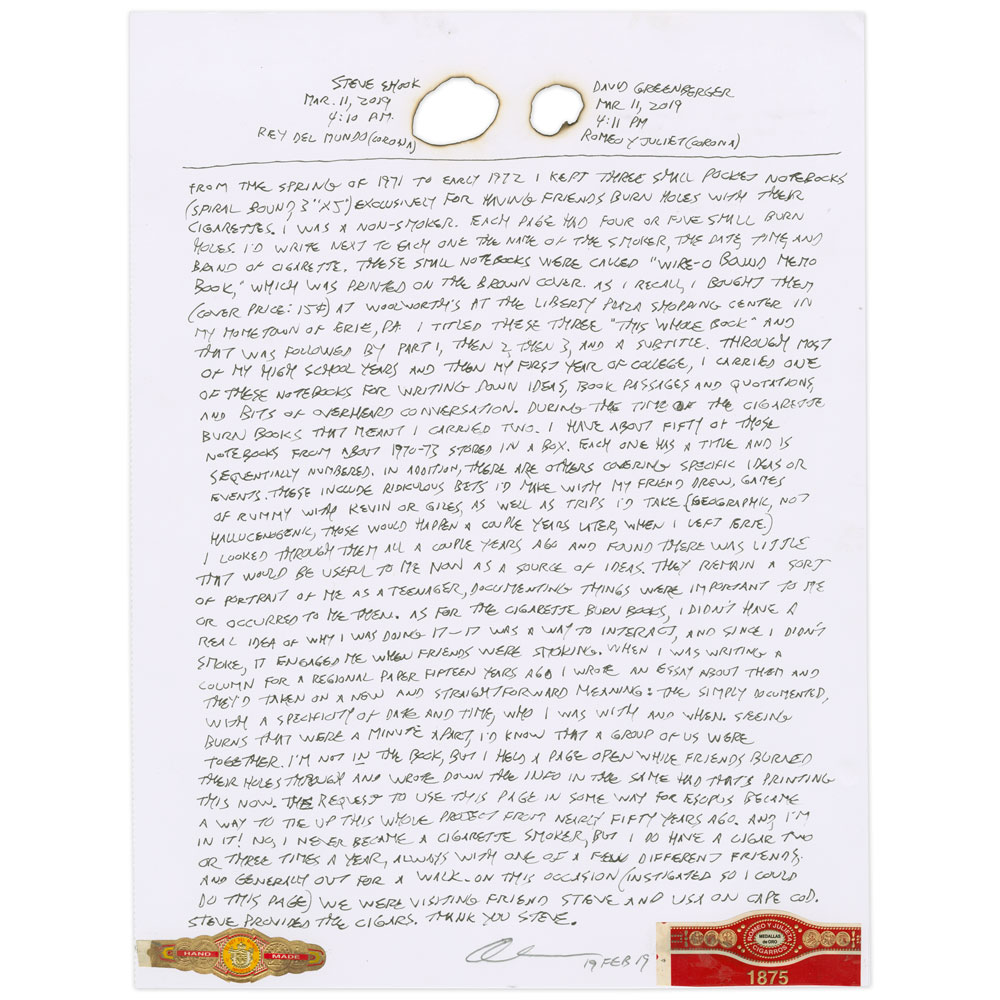 STEVE SMOOK
MAR. 11, 2019
4:10 P.M.
REY DEL MUNDO (CORONA)
DAVID GREENBERGER
MAR 11, 2019
4:11 PM
ROMEO Y JULIET (CORONA)
FROM THE SPRING OF 1971 TO EARLY 1972 I KEPT THREE SMALL POCKET NOTEBOOKS
(SPIRAL BOUND, 3"X5") EXCLUSIVELY FOR HAVING FRIENDS BURN HOLES WITH THEIR
CIGARETTES. I WAS A NON-SMOKER. EACH PAGE HAD FOUR OR FIVE SMALL BURN
HOLES. I'D WRITE NEXT TO EACH ONE THE NAME OF THE SMOKER, THE DATE, TIME, AND
BRAND OF CIGARETTE. THESE SMALL NOTEBOOKS WERE CALLED "WIRE-O BOUND MEMO
BOOK," WHICH WAS PRINTED ON THE BROWN COVER. AS I RECALL, I BOUGHT THEM
(COVER PRICE: 15¢) AT WOOLWORTH'S AT THE LIBERTY PLAZA SHOPPING CENTER IN
MY HOMETOWN OF ERIE, PA. I TITLED THESE THREE "THIS WHOLE BOOK" AND
THAT WAS FOLLOWED BY PART 1, THEN 2, THEN 3, AND A SUBTITLE. THROUGH MOST
OF MY HIGH SCHOOL YEARS AND THEN MY FIRST YEAR OF COLLEGE, I CARRIED ONE
OF THESE NOTEBOOKS FOR WRITING DOWN IDEAS, BOOK PASSAGES AND QUOTATIONS,
AND BITS OF OVERHEARD CONVERSATION. DURING THE TIME OF THE CIGARETTE
BURN BOOKS THAT MEANT I CARRIED TWO. I HAVE ABOUT FIFTY OF THOSE
NOTEBOOKS FROM ABOUT 1970-73 STORED IN A BOX. EACH ONE HAS A TITLE AND IS
SEQUENTIALLY NUMBERED. IN ADDITION, THERE ARE OTHERS COVERING SPECIFIC IDEAS OR
EVENTS. THESE INCLUDE RIDICULOUS BETS I'D MAKE WITH MY FRIEND DREW, GAMES
OF RUMMY WITH KEVIN OR GILES, AS WELL AS TRIPS I'D TAKE (GEOGRAPHIC, NOT
HALLUCENOGENIC, THOSE WOULD HAPPEN A COUPLE YEARS LATER, WHEN I LEFT ERIE.)
I LOOKED THROUGH THEM ALL A COUPLE YEARS AGO AND FOUND THERE WAS LITTLE
THAT WOULD BE USEFUL TO ME NOW AS A SOURCE OF IDEAS. THEY REMAIN A SORT
OF PORTRAIT OF ME AS A TEENAGER, DOCUMENTING THINGS WERE IMPORTANT TO ME
OR OCCURRED TO ME THEN. AS FOR THE CIGARETTE BURN BOOKS, I DIDN'T HAVE A
REAL IDEA OF WHY I WAS DOING IT – IT WAS A WAY TO INTERACT, AND SINCE I DIDN'T
SMOKE, IT ENGAGED ME WHEN FRIENDS WERE SMOKING. WHEN I WAS WRITING A
COLUMN FOR A REGIONAL PAPER FIFTEEN YEARS AGO I WROTE AN ESSAY ABOUT THEM AND
THEY'D TAKEN ON A NEW AND STRAIGHTFORWARD MEANING: THE SIMPLY DOCUMENTED,
WITH A SPECIFICITY OF DATE AND TIME, WHO I WAS WITH AND WHEN. SEEING
BURNS THAT WERE A MINUTE APART, I'D KNOW THAT A GROUP OF US WERE
TOGETHER. I'M NOT IN THE BOOK, BUT I HELD A PAGE OPEN WHILE FRIENDS BURNED
THEIR HOLES THROUGH AND WROTE DOWN THE INFO IN THE SAME HAD THAT'S PRINTING
THIS NOW. THE REQUEST TO USE THIS PAGE IN SOME WAY FOR ESOPUS BECAME
A WAY TO TIE UP THIS WHOLE PROJECT FROM NEARLY FIFTY YEARS AGO. AND, I'M
IN IT! NO, I NEVER BECAME A CIGARETTE SMOKER, BUT I DO HAVE A CIGAR TWO
OR THREE TIMES A YEAR, ALWAYS WITH ONE OF A FEW DIFFERENT FRIENDS.
AND GENERALLY OUT FOR A WALK. ON THIS OCCASION (INSTIGATED SO I COULD
DO THIS PAGE) WE WERE VISITING FRIEND STEVE AND LISA ON CAPE COD.
STEVE PROVIDED THE CIGARS. THANK YOU STEVE.
19 FEB 19
HAND MADE
ROMEO Y JULIETA
MEDALLAS
de ORO
CIGARROS
1875